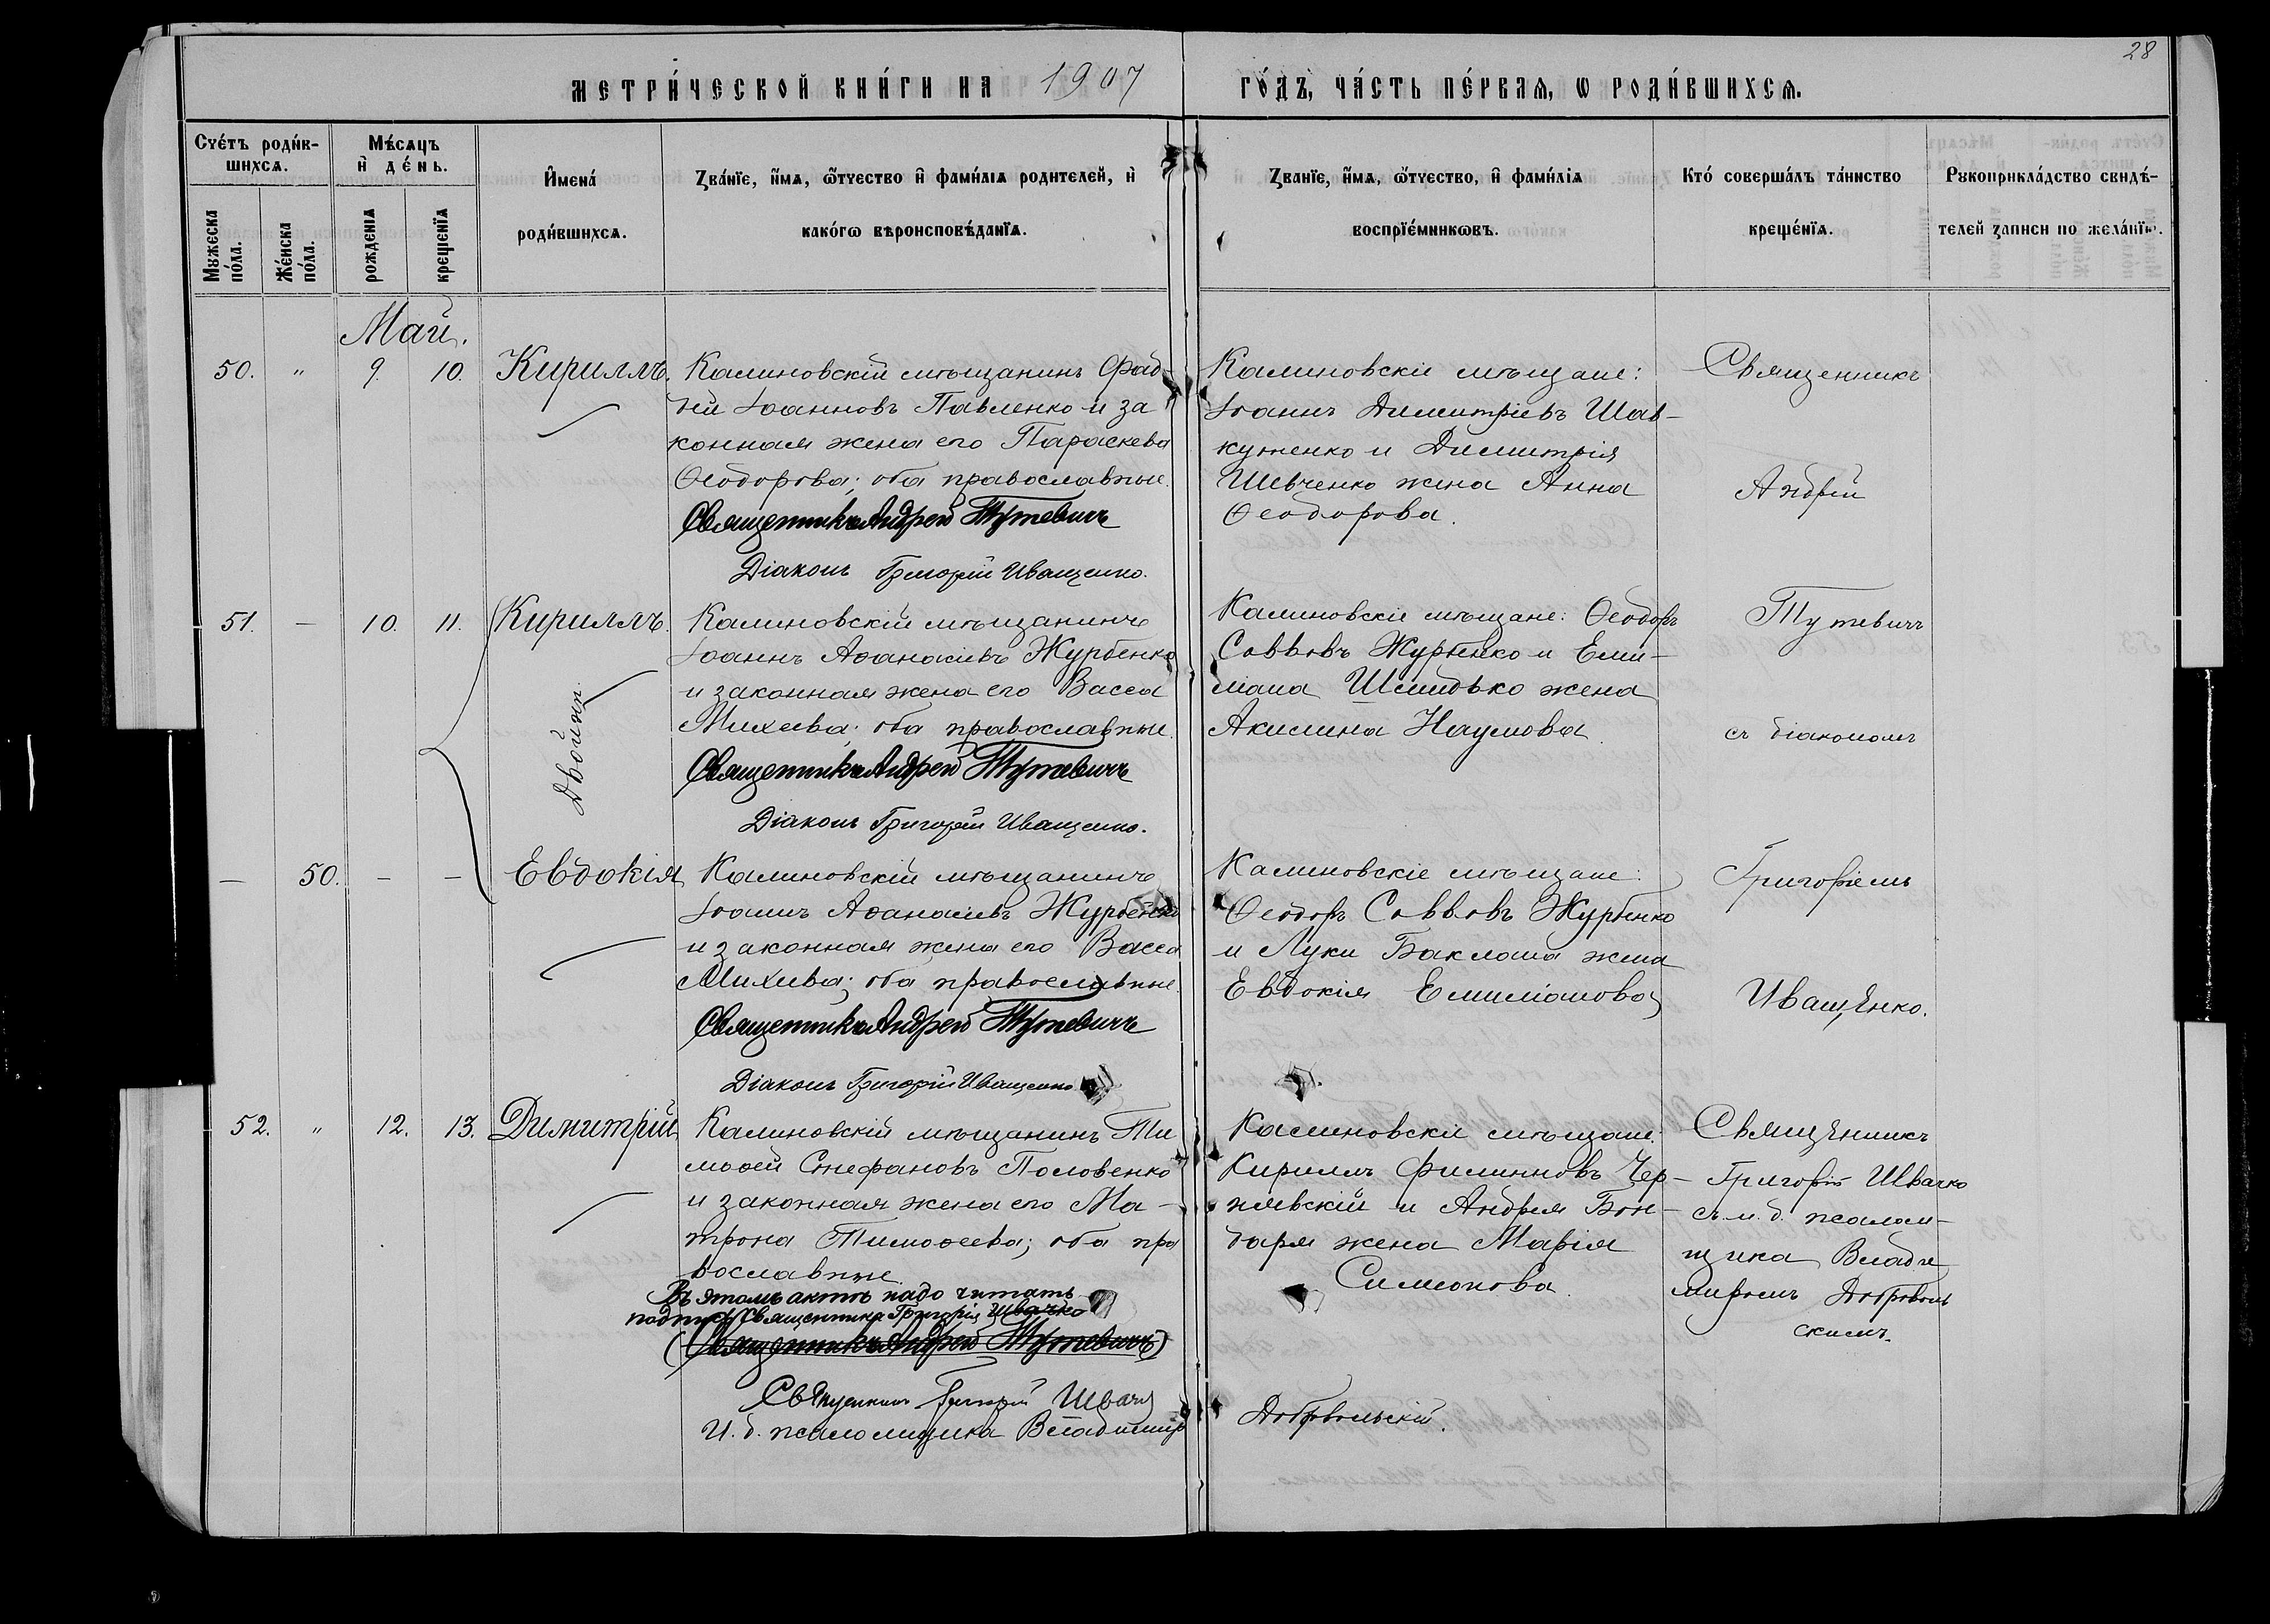 28
МЕТРИ́ЧЕСКОЙ КНИ́ГИ НА 1907 ГО́ДЪ, ЧА́СТЬ ПЕ́РВАѦ, Ѡ РОДИ́ВШИХСѦ.
Счéтъ роди́в-
шихсѧ.
Мужеска
по́ла.
Же́нска
по́ла.
Мѣ́сѧцъ
и҆ де́нь.
рожденїѧ
крещенїѧ
И҆мена́
роди́вшихсѧ.
Зва́нїе, и҆́мѧ, ѻ҆́тчество и҆ фами́лїѧ родителей, и҆
како́гѡ вѣроисповѣ́данїѧ.
Званїе, и҆́мѧ, ѻ҆́тчество, и҆ фами́лїѧ
воспрїе́мникѡвъ.
Кто́ соверша́лъ та́инство
креще́нїѧ.
Рукоприкла́дство свидѣ́-
телей записи по жела́нїю.
Май.
50. " 9. 10. Кириллъ.
Калиновскій мѣщанинъ Фад-
дей Іоанновъ Павленко и за
конная жена его Параскева
Ѳеодорова; оба православные.
Священникъ Андрей Тутевичъ
Діаконъ Григорій Иващенко.
Калиновскіе мѣщане:
Іоаннъ Димитріевъ Шав-
куненко и Димитрія
Шевченко жена Анна
Ѳеодорова.
Священникъ
Андрей
51. — 10. 11. Кириллъ.
Двойни.
Калиновскій мѣщанинъ
Іоаннъ Аѳанасіевъ Журбенко
и законная жена его Васса
Михеева; оба православные.
Священникъ Андрей Тутевичъ
Діаконъ Григорій Иващенко.
Калиновскіе мѣщане: Ѳеодоръ
Саввовъ Журбенко и Еми-
ліана Шмидько жена
Акилина Наумова.
Тутевичъ
съ діакономъ
— 50. — — Евдокія
Калиновскій мѣщанинъ
Іоаннъ Аѳанасіевъ Журбенко
и законная жена его Васса
Михеева; оба православные.
Священникъ Андрей Тутевичъ
Діаконъ Григорій Иващенко
Калиновскіе мѣщане:
Ѳеодоръ Саввовъ Журбенко
и Луки Баклана жена
Евдокія Емиліанова
Григоріемъ
Иващенко.
52. " 12. 13. Димитрій
Калиновскій мѣщанинъ Ти
моѳей Стефановъ Половенко
и законная жена его Ма-
трона Тимоѳеева; оба пра
вославные.
Въ этомъ актѣ надо читать
подпись Священника Григорія Швачко
(Священникъ Андрей Тутевичъ)
Священникъ Григорій Швачко
И. д. псаломщика Владиміръ Добровольскій.
Калиновскіе мѣщане:
Кириллъ Филипповъ Чер-
нявскій и Андрея Бон-
даря жена Марія
Симеонова.
Священникъ
Григорій Швачко
съ и. д. псалом-
щика Влади
миромъ Доброволь
скимъ.